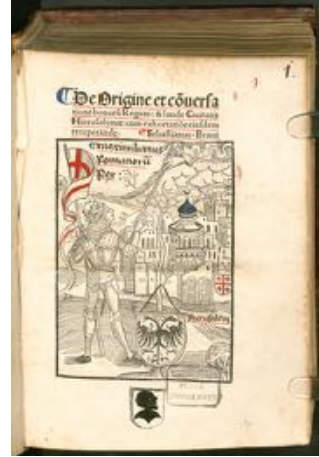 1.
De Origine et cōuersa
tione bonorū Regum: & laude Ciuitatis
Hierosolymę: cum exhortatiōe eiusdem
recuperandę. Sebastianus Brant
Maximilianus
Romanorū
Rex: